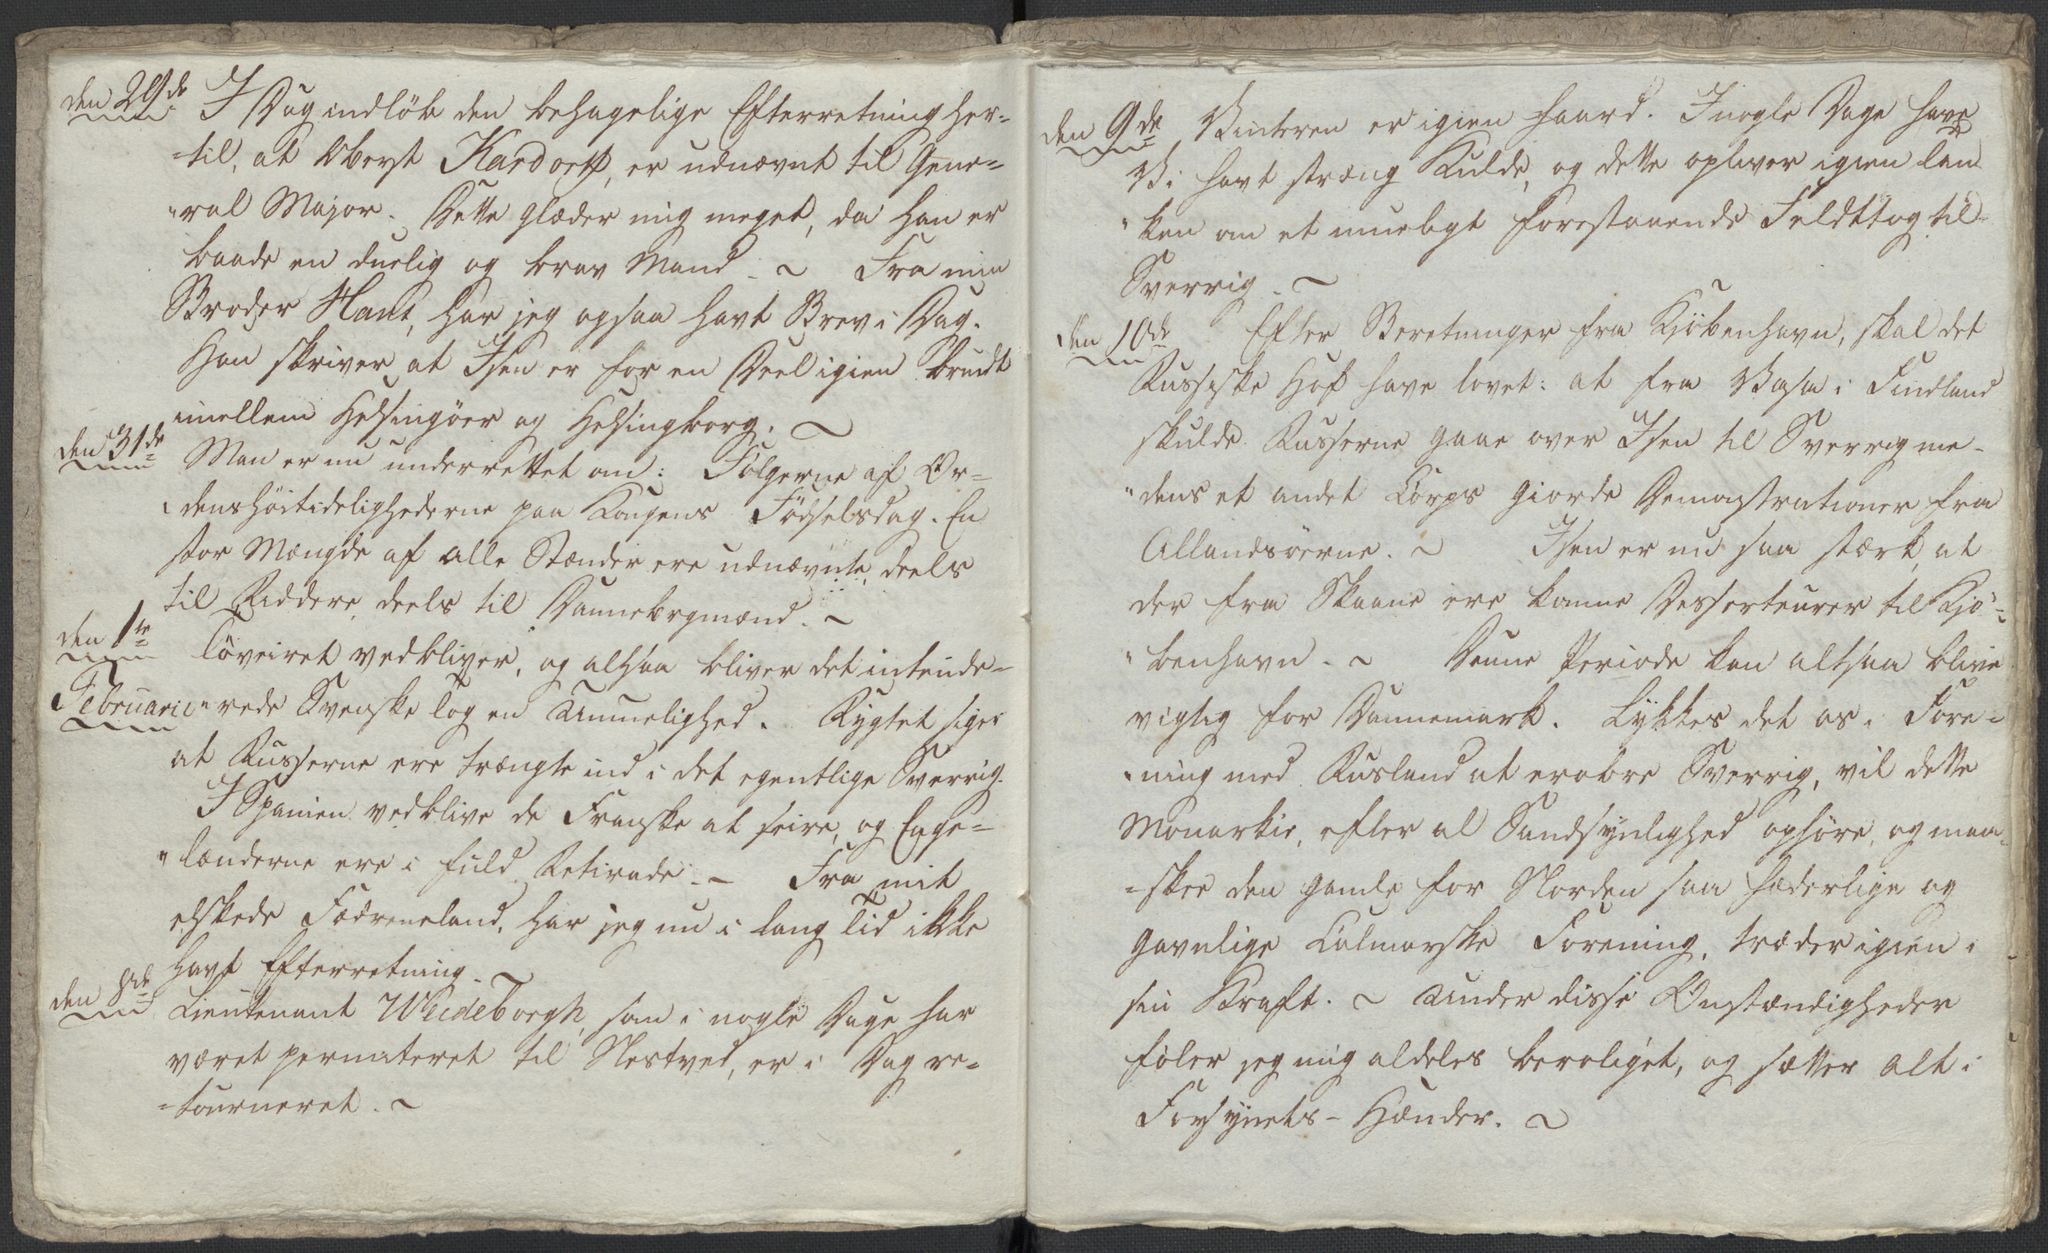 den 29de I Dag indløb den behagelige Efterretning her-
-til, at Oberst Kardorff, er udnævnt til Gene-
"ral Major. Dette glæder mig meget, da han er
baade en duelig og brav Mand. ~ Fra min
Broder Hans, har jeg ogsaa havt Brev i Dag.
Han skriver at Isen er for en Deel igien brudt
imellem Helsingöer og Helsingborg. ~
den 31de Man er nu underrettet om: Fölgerne af Or-
denshöitidelighederne paa Kongens Födselsdag. En
stor Mængde af alle Stænder ere udnævnte, deels
til Riddere, deels til Dannebrgmænd. ~
den 1te Töveiret vedbliver, og altsaa bliver det intende-
Februarii "rede Svenske Tog en Umuelighed. Rygtet siger
at Russerne ere trængte ind i det egentlige Sverrig.
I Spanien vedblive de Franske at seire, og Enge-
"lænderne ere i fuld Retirade. ~ Fra mit
elskede Fædreneland, har jeg nu i lang Tid ikke
havt Efterretning. ~
den 8de Lieutenant Weideborgh, som i nogle Dage har
været permiteret til Nestved, er i Dag re-
-tourneret. ~
den 9de Vinteren er igien haard. I nogle Dage have
Vi havt stræng Kulde, og dette opliver igien Tan
"ken om et mueligt forestaaende Feldttog til
Sverrig. ~
den 10de Efter Beretninger fra Kjöbenhavn, skal det
Russiske Hof have lovet: at fra Vasa i Findland
skulde Russerne gaae over Isen til Sverrig me-
"dens et andet Corps giorde Demostrationer fra
Allandsöerne. ~ Isen er nu saa stærk, at
der fra Skaane ere komne Desserteurer til Kjö-
"benhavn. ~ Denne Periode kan altsaa blive
vigtig for Dannemark. Lykkes det os i Fore-
"ning med Rusland at erobre Sverrig, vil dette
Monarkie, efter al Sandsynlighed ophöre, og maa-
-skee den gamle for Norden saa hæderlige og
gavnlige Calmarske Forening, træder igien i
sin Kraft. ~ Under disse Omstændigheder
föler jeg mig aldeles beroliget, og sætter alt i
Forsynets - Hænder. ~